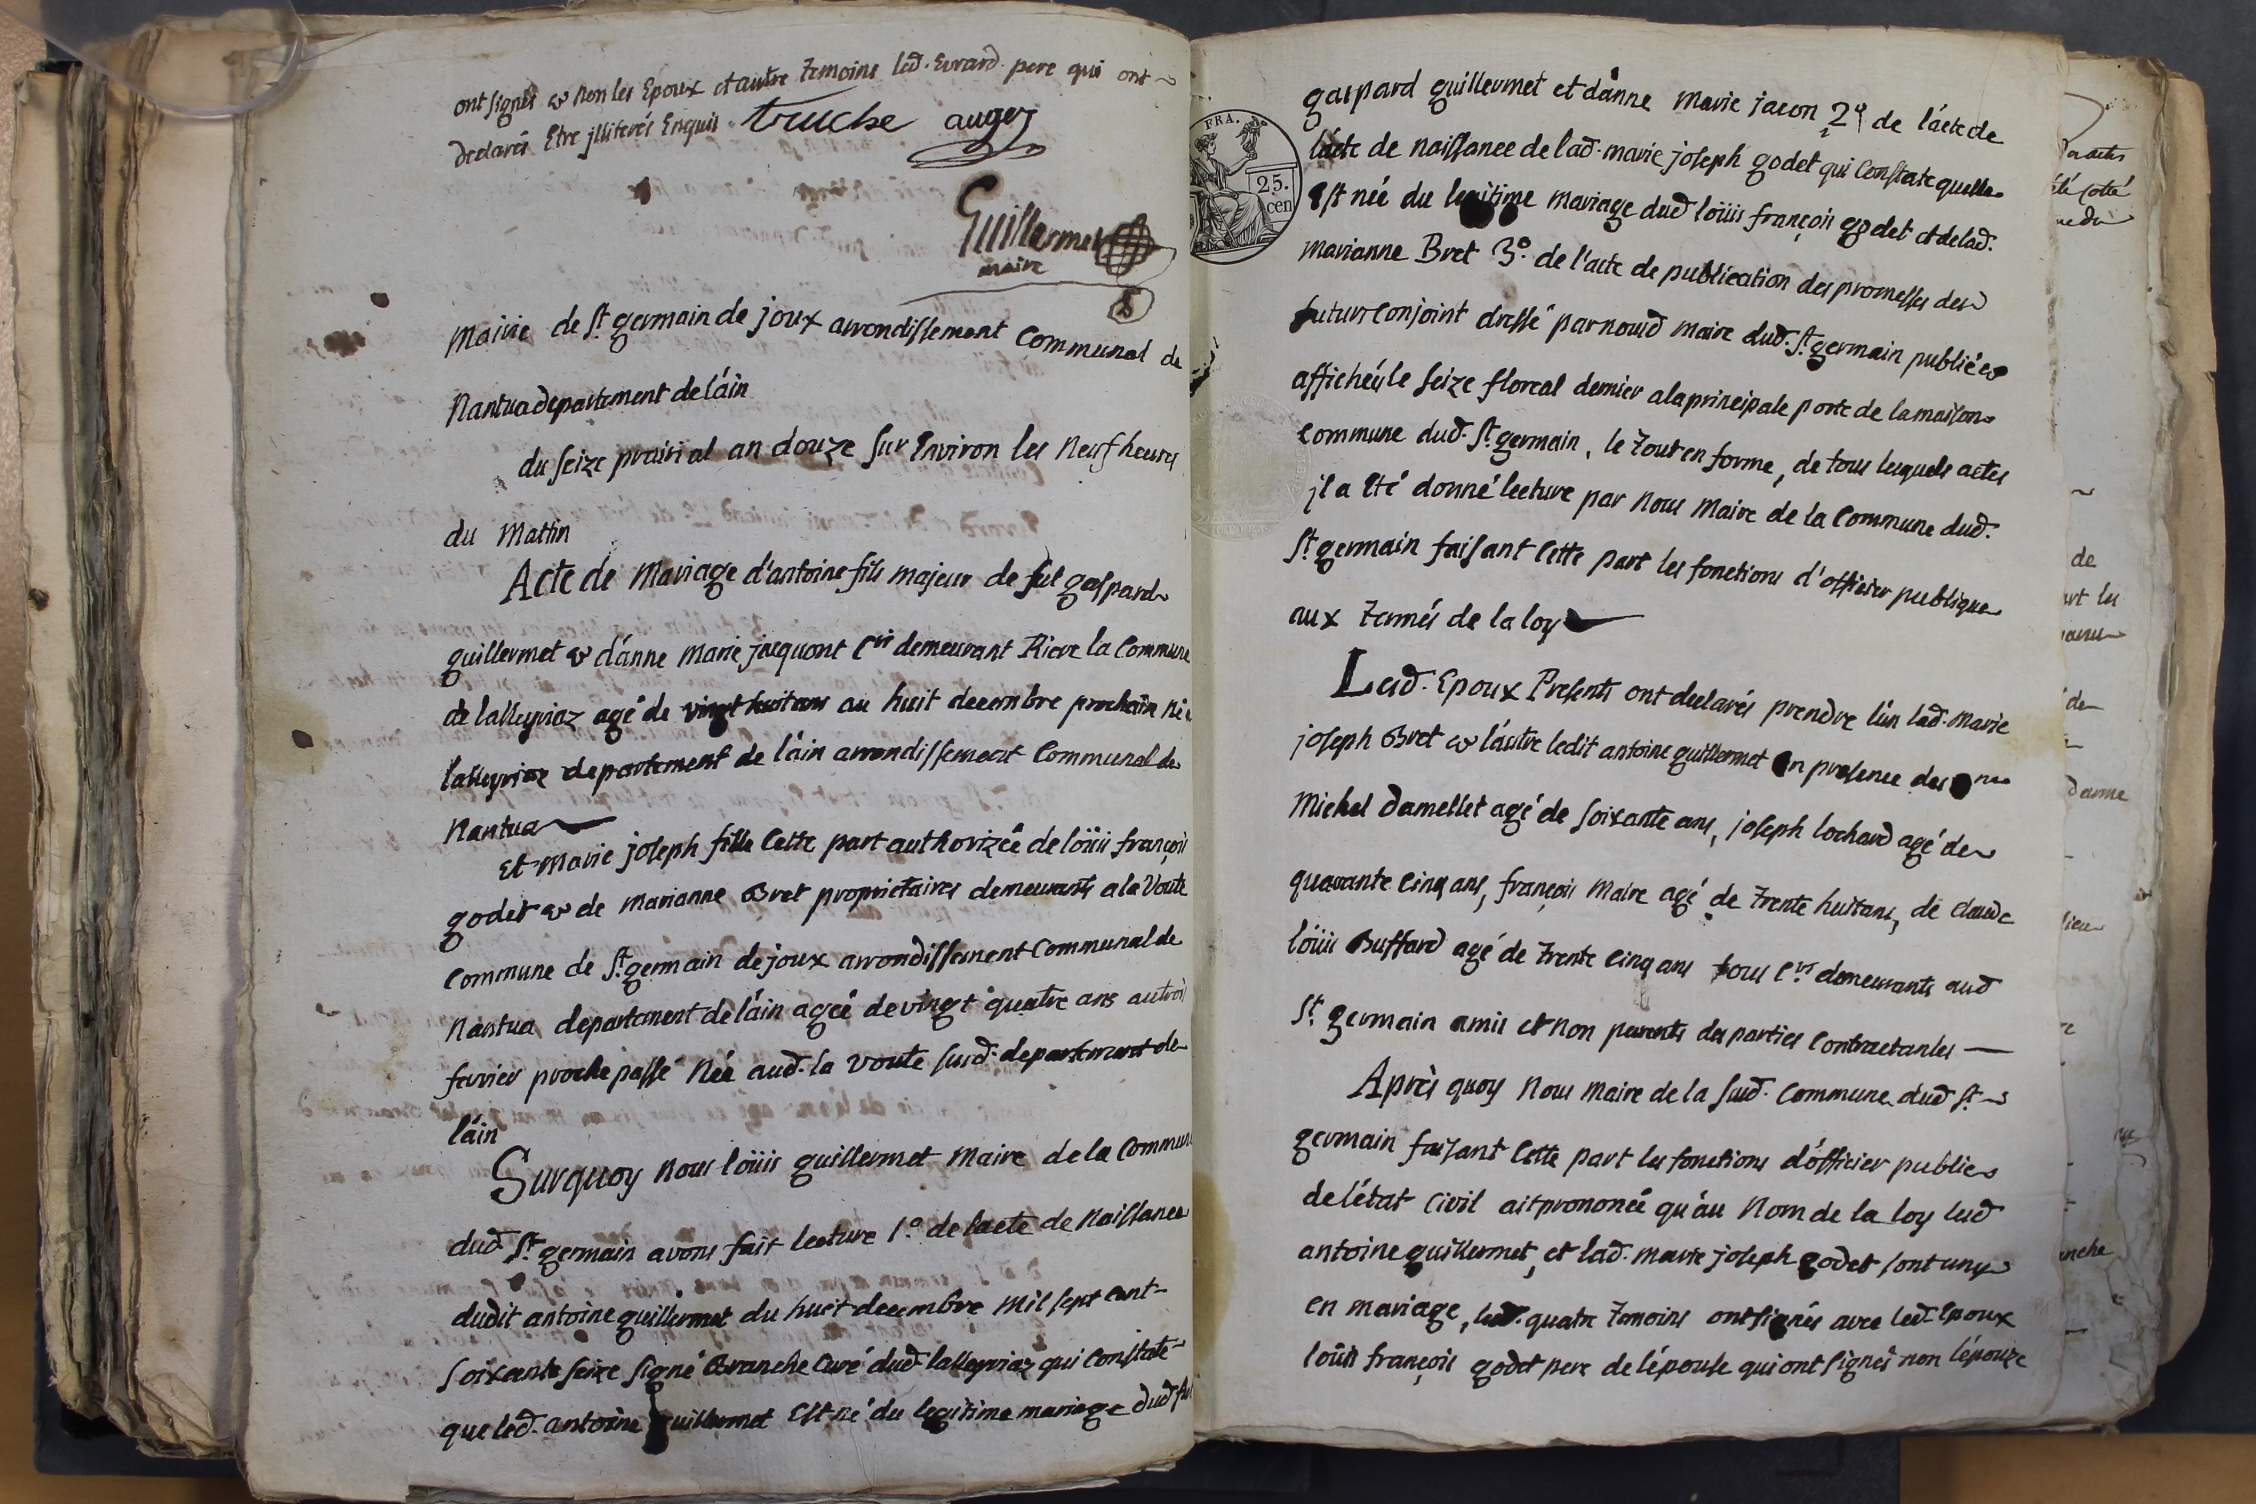 ont signés & non les Epoux et autre temoins led. Evrard pere qui ont
declarés Etre jlliterés Enquis. truche auger
Guillermet
maire
5
Mairie de St. germain de joux arrondissement Communal de
Nantua departement de láin
du seize prairial an douze sur Environ les neuf heures
du Mattin
Acte de Mariage d'antoine fils majeur de fut gaspard
guillermet & dánne marie jacquont Cen demeurant Riere la Commune
de lalleyriaz agé de vingt huit ans au huit decembre prochain né
lalleyriaz departement de láin arrondissement Communal de
Nantua
Et marie joseph fille Cette part authorizéé de loüis françois
godet & de marianne Bret proprietaires demeurants a la Voute
Commune de St. germain de joux arrondissement Communal de
Nantua departement de láin ageé de vingt quatre ans au trois
fevrier proche passé Née aud. la Voute susd. departement de
láin
Surquoy nous loüis guillermet maire de la Commune
dud. St. germain avons fait lecture 1.° de lacte de Naissance
dudit antoine guillermet du huit decembre mil sept cent
soixante seize signé Branche Curé dud. lalleyriaz qui Constate
que led. antoine guillermet Est né du legitime mariage dud. fut
FRA.
25.
cen
gaspard guillermet et dánne Marie jacon 2° de lácte de
lácte de naissance de lad. marie joseph godet qui Constate quelle
Est née du legitime mariage dud. loüis françois godet et de lad.
Marianne Bret 3.° de l'acte de publication des promesses des
futurs Conjoint dressé par nousd. maire dud. St. germain publié &
affichéy le seize floreal dernier a la principale porte de la maison
Commune dud. St. germain, le tout en forme, de tous lesquels actes
jl a Eté donné lecture par nous maire de la Commune dud.
St. germain faisant Cette part les fonctions d'officier publique
aux termés de la loy
Lesd. Epoux Presents ont declarés prendre lún lad. Marie
joseph Bret & láutre ledit antoine guillermet En presence des
Michel Damellet agé de soixante ans, joseph lochard agé de
quarante Cinq ans, françois Maire agé de trente huit ans, de claude
loüis Buffard agé de trente Cinq ans tous Cens demeurants aud
St. germain amis et non parents des parties Contractantes
Aprés quoy Nous maire de la susd. Commune dud. St.
germain faisant Cette part les fonctions d'officier public
de létat Civil ait prononcé qu'au Nom de la loy led
antoine guillermet, et lad. marie joseph godet sont unys
en mariage, les d. quatre temoins ont signés avec led. Epoux
loüis françois godet pere de lépouse qui ont signés non lépouze